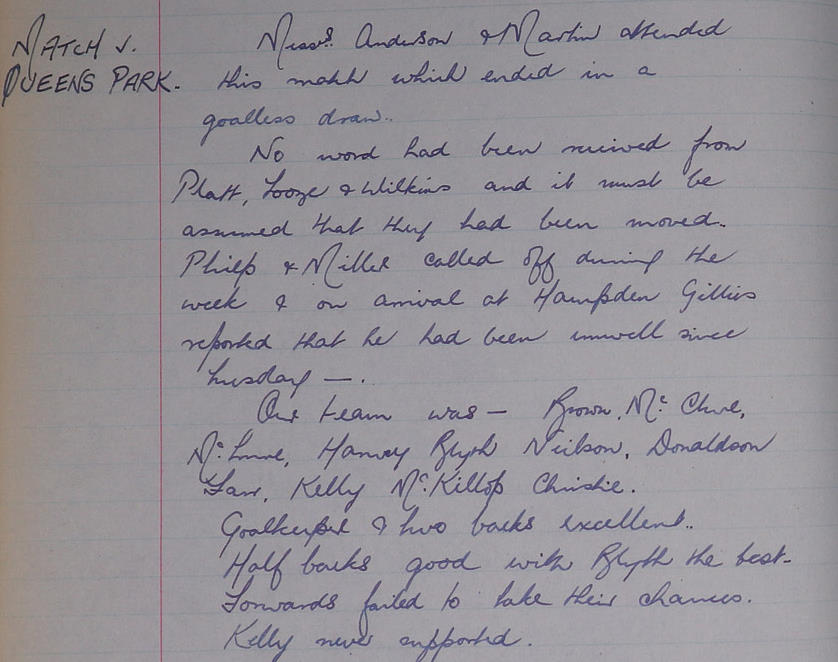 MATCH v.
QUEENS PARK.
Messrs. Anderson & Martin attended
this match which ended in a
goalless draw..
No word had been received from
Platt, Looze & Wilkins and it must be
assumed that they had been moved..
Philp & Miller called off during the
week & on arrival at Hampden Gillies
reported that he had been unwell since
Tuesday —.
Our team was — Brown, Mc. Clure,
Mc. Harvey Blyth Neilson, Donaldson
Kelly Mc. Killop Christie.
Goalkeeper & two backs excellent..
Half backs good with Blyth the best-
Forwards failed to take their chances.
Kelly never supported.